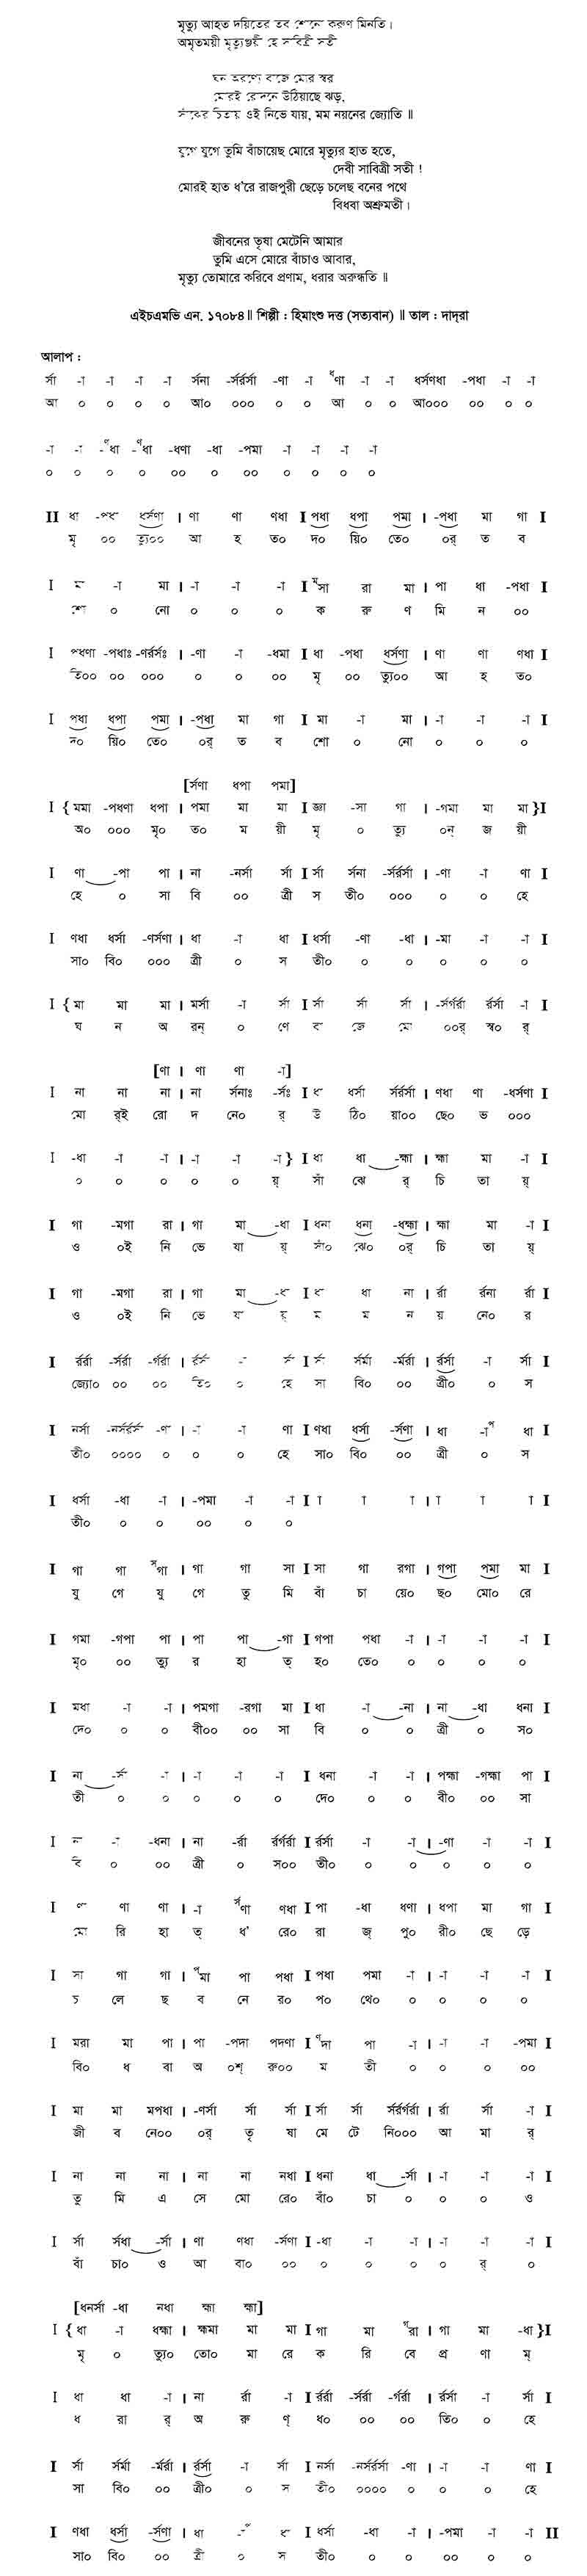 মৃত্যু আহত দয়িতের তব শোনো করুণ মিনতি।
অমৃতময়ী মৃত্যুঞ্জয়ী হে সাবিত্রী সতী
ঘন অরণ্যে বাজে মোর স্বর
মোরই রোদনে উঠিয়াছে ঝড়,
সাঁঝের চিতায় ওই নিভে যায়, মম নয়নের জ্যোতি ॥
যুগে যুগে তুমি বাঁচায়েছ মোরে মৃত্যুর হাত হতে,
দেবী সাবিত্রী সতী !
মোরই হাত ধ'রে রাজপুরী ছেড়ে চলেছ বনের পথে
বিধবা অশ্রুমতী।
জীবনের তৃষা মেটেনি আমার
তুমি এসে মোরে বাঁচাও আবার,
মৃত্যু তোমারে করিবে প্রণাম, ধরার অরুন্ধতি ॥
এইচএমভি এন. ১৭০৮৪॥ শিল্পী : হিমাংশু দত্ত (সত্যবান) ॥ তাল : দাদ্‌রা
আলাপ :
র্সা -া -া -া -া র্সনা -র্সর্রর্সা -ণা -া ধণা -া -া ধর্সণধা -পধা -া -া
আ ০ ০ ০ ০ আ০ ০০০ ০ ০ আ ০ ০ আ০০০ ০০ ০ ০
-া -া -ণধা -ণধা -ধণা -ধা -পমা -া -া -া -া
০ ০ ০ ০ ০০ ০ ০০ ০ ০ ০ ০
II ধা -পধা ধর্সণা । ণা ণা ণধা I পধা ধপা পমা । -পধা মা গা I
মৃ ০০ ত্যু০০ আ হ ত০ দ০ য়ি০ তে০ ০র্ ত ব
I মা -া মা । -া -া -া I মসা রা মা । পা ধা -পধা I
শো ০ নো ০ ০ ০ ক রু ণ মি ন ০০
I পধণা -পধাঃ -ণর্রর্সঃ । -ণা -া -ধমা I ধা -পধা ধর্সণা । ণা ণা ণধা I
তি০০ ০০ ০০০ ০ ০ ০০ মৃ ০০ ত্যু০০ আ হ ত০
I পধা ধপা পমা । -পধা মা গা I মা -া মা । -া -া -া I
দ০ য়ি০ তে০ ০র্ ত ব শো ০ নো ০ ০ ০
[র্সণা ধপা পমা]
I { মমা -পধণা ধপা । পমা মা মা I জ্ঞা -সা গা । -গমা মা মা }I
অ০ ০০০ মৃ০ ত০ ম য়ী মৃ ০ ত্যু ০ন্ জ য়ী
I ণা -পা পা । না -নর্সা র্সা I র্সা র্সনা -র্সর্রর্সা । -ণা -া ণা I
হে ০ সা বি ০০ ত্রী স তী০ ০০০ ০ ০ হে
I ণধা ধর্সা -ণর্সণা । ধা -া ধা I ধর্সা -ণা -ধা । -মা -া -া I
সা০ বি০ ০০০ ত্রী ০ স তী০ ০ ০ ০ ০ ০
I { মা মা মা । মর্সা -া র্সা I র্সা র্সা র্সা । -র্সর্গর্রা র্রর্সা -া I
ঘ ন অ রন্ ০ ণে বা জে মো ০০র্ স্ব০ র্
[ণা । ণা ণা -া]
I না না না । না র্সনাঃ -র্সঃ I ধা ধর্সা র্সর্রর্সা । ণধা ণা -ধর্সণা I
মো র্‌ই রো দ নে০ র্ উ ঠি০ য়া০০ ছে০ ভ ০০০
I -ধা -া -া । -া -া -া } I ধা ধা -হ্মা । হ্মা মা -া I
০ ০ ০ ০ ০ য় সাঁ ঝে র্ চি তা য়্
I গা -মগা রা । গা মা -ধা I ধনা ধনা -ধহ্মা । হ্মা মা -া I
ও ০ই নি ভে যা য়্ সাঁ০ ঝে০ ০র্ চি তা য়্
I গা -মগা রা । গা মা -ধা I ধা ধা না । র্রা র্রনা র্রা I
ও ০ই নি ভে যা য়্ ম ম ন য় নে০ র
I র্রর্রা -র্সর্রা -র্গর্রা । র্রর্সা -া র্সা I র্সা র্সর্মা -র্মর্রা । র্রর্সা -া র্সা I
জ্যো০ ০০ ০০ তি০ ০ হে সা বি০ ০০ ত্রী০ ০ স
I নর্সা -নর্সর্রর্সা -ণা । -া -া ণা I ণধা ধর্সা -র্সণা । ধা -াপ ধা I
তী০ ০০০০ ০ ০ ০ হে সা০ বি০ ০০ ত্রী ০ স
I ধর্সা -ধা -া । -পমা -া -া I া া া । া া া I
তী০ ০ ০ ০০ ০ ০
I গা গা সগা । গা গা সা I সা গা রগা । গপা পমা মা I
যু গে যু গে তু মি বাঁ চা য়ে০ ছ০ মো০ রে
I গমা -গপা পা । পা পা -গা I গপা পধা -া । -া -া -া I
মৃ০ ০০ ত্যু র হা ত্ হ০ তে০ ০ ০ ০ ০
I মধা -া -া । পমগা -রগা মা I ধা -া -না । না -ধা ধনা I
দে০ ০ ০ বী০০ ০০ সা বি ০ ০ ত্রী ০ স০
I না -র্সা -া । -া -া -া I ধনা -া -া । পহ্মা -গহ্মা পা I
তী ০ ০ ০ ০ ০ দে০ ০ ০ বী০ ০০ সা
I না -া -ধনা । না -র্রা র্রর্গর্রা I র্রর্সা -া -া । -ণা -া -া I
বি ০ ০০ ত্রী ০ স০০ তী০ ০ ০ ০ ০ ০
I ণা ণা ণা । -া র্সণা ণধা I পা -ধা ধণা । ধপা মা গা I
মো রি হা ত্ ধ' রে০ রা জ্ পু০ রী০ ছে ড়ে
I সা গা গা । পমা পা পধা I পধা পমা -া । -া -া -া I
চ লে ছ ব নে র০ প০ থে০ ০ ০ ০ ০
I মরা মা পা । পা -পদা পদণা I ণদা পা -া । -া -া -পমা I
বি০ ধ বা অ ০শ্ রু০০ ম তী ০ ০ ০ ০০
I মা মা মপধা । -ণর্সা র্সা র্সা I র্সা র্সা র্সর্রর্গর্রা । র্রা র্সা -া I
জী ব নে০০ ০র্ তৃ ষা মে টে নি০০০ আ মা র্
I না না না । না না নধা I ধনা ধা -র্সা । -া -া -া I
তু মি এ সে মো রে০ বাঁ০ চা ০ ০ ০ ও
I র্সা র্সধা -র্সা । ণা ণধা -র্সণা I -ধা -া -া । -া -া -া I
বাঁ চা০ ও আ বা০ ০০ ০ ০ ০ ০ র্ ০
[ধনর্সা -ধা নধা হ্মা হ্মা]
I { ধা -া ধহ্মা । হ্মমা মা মা I গা মা পরা । গা মা -ধা }I
মৃ ০ ত্যু০ তো০ মা রে ক রি বে প্র ণা ম্
I ধা ধা -া । না র্রা -া I র্রর্রা -র্সর্রা -র্গর্রা । র্রর্সা -া র্সা I
ধ রা র্ অ রু ণ্ ধ০ ০০ ০০ তি০ ০ হে
I র্সা র্সর্মা -র্মর্রা । র্রর্সা -া র্সা I নর্সা -নর্সর্রর্সা -ণা । -া -া ণা I
সা বি০ ০০ ত্রী০ ০ স তী০ ০০০০ ০ ০ ০ হে
I ণধা ধর্সা -র্সণা । ধা -াপ ধা I ধর্সা -ধা -া । -পমা -া -া II
সা০ বি০ ০০ ত্রী ০ স তী০ ০ ০ ০০ ০ ০